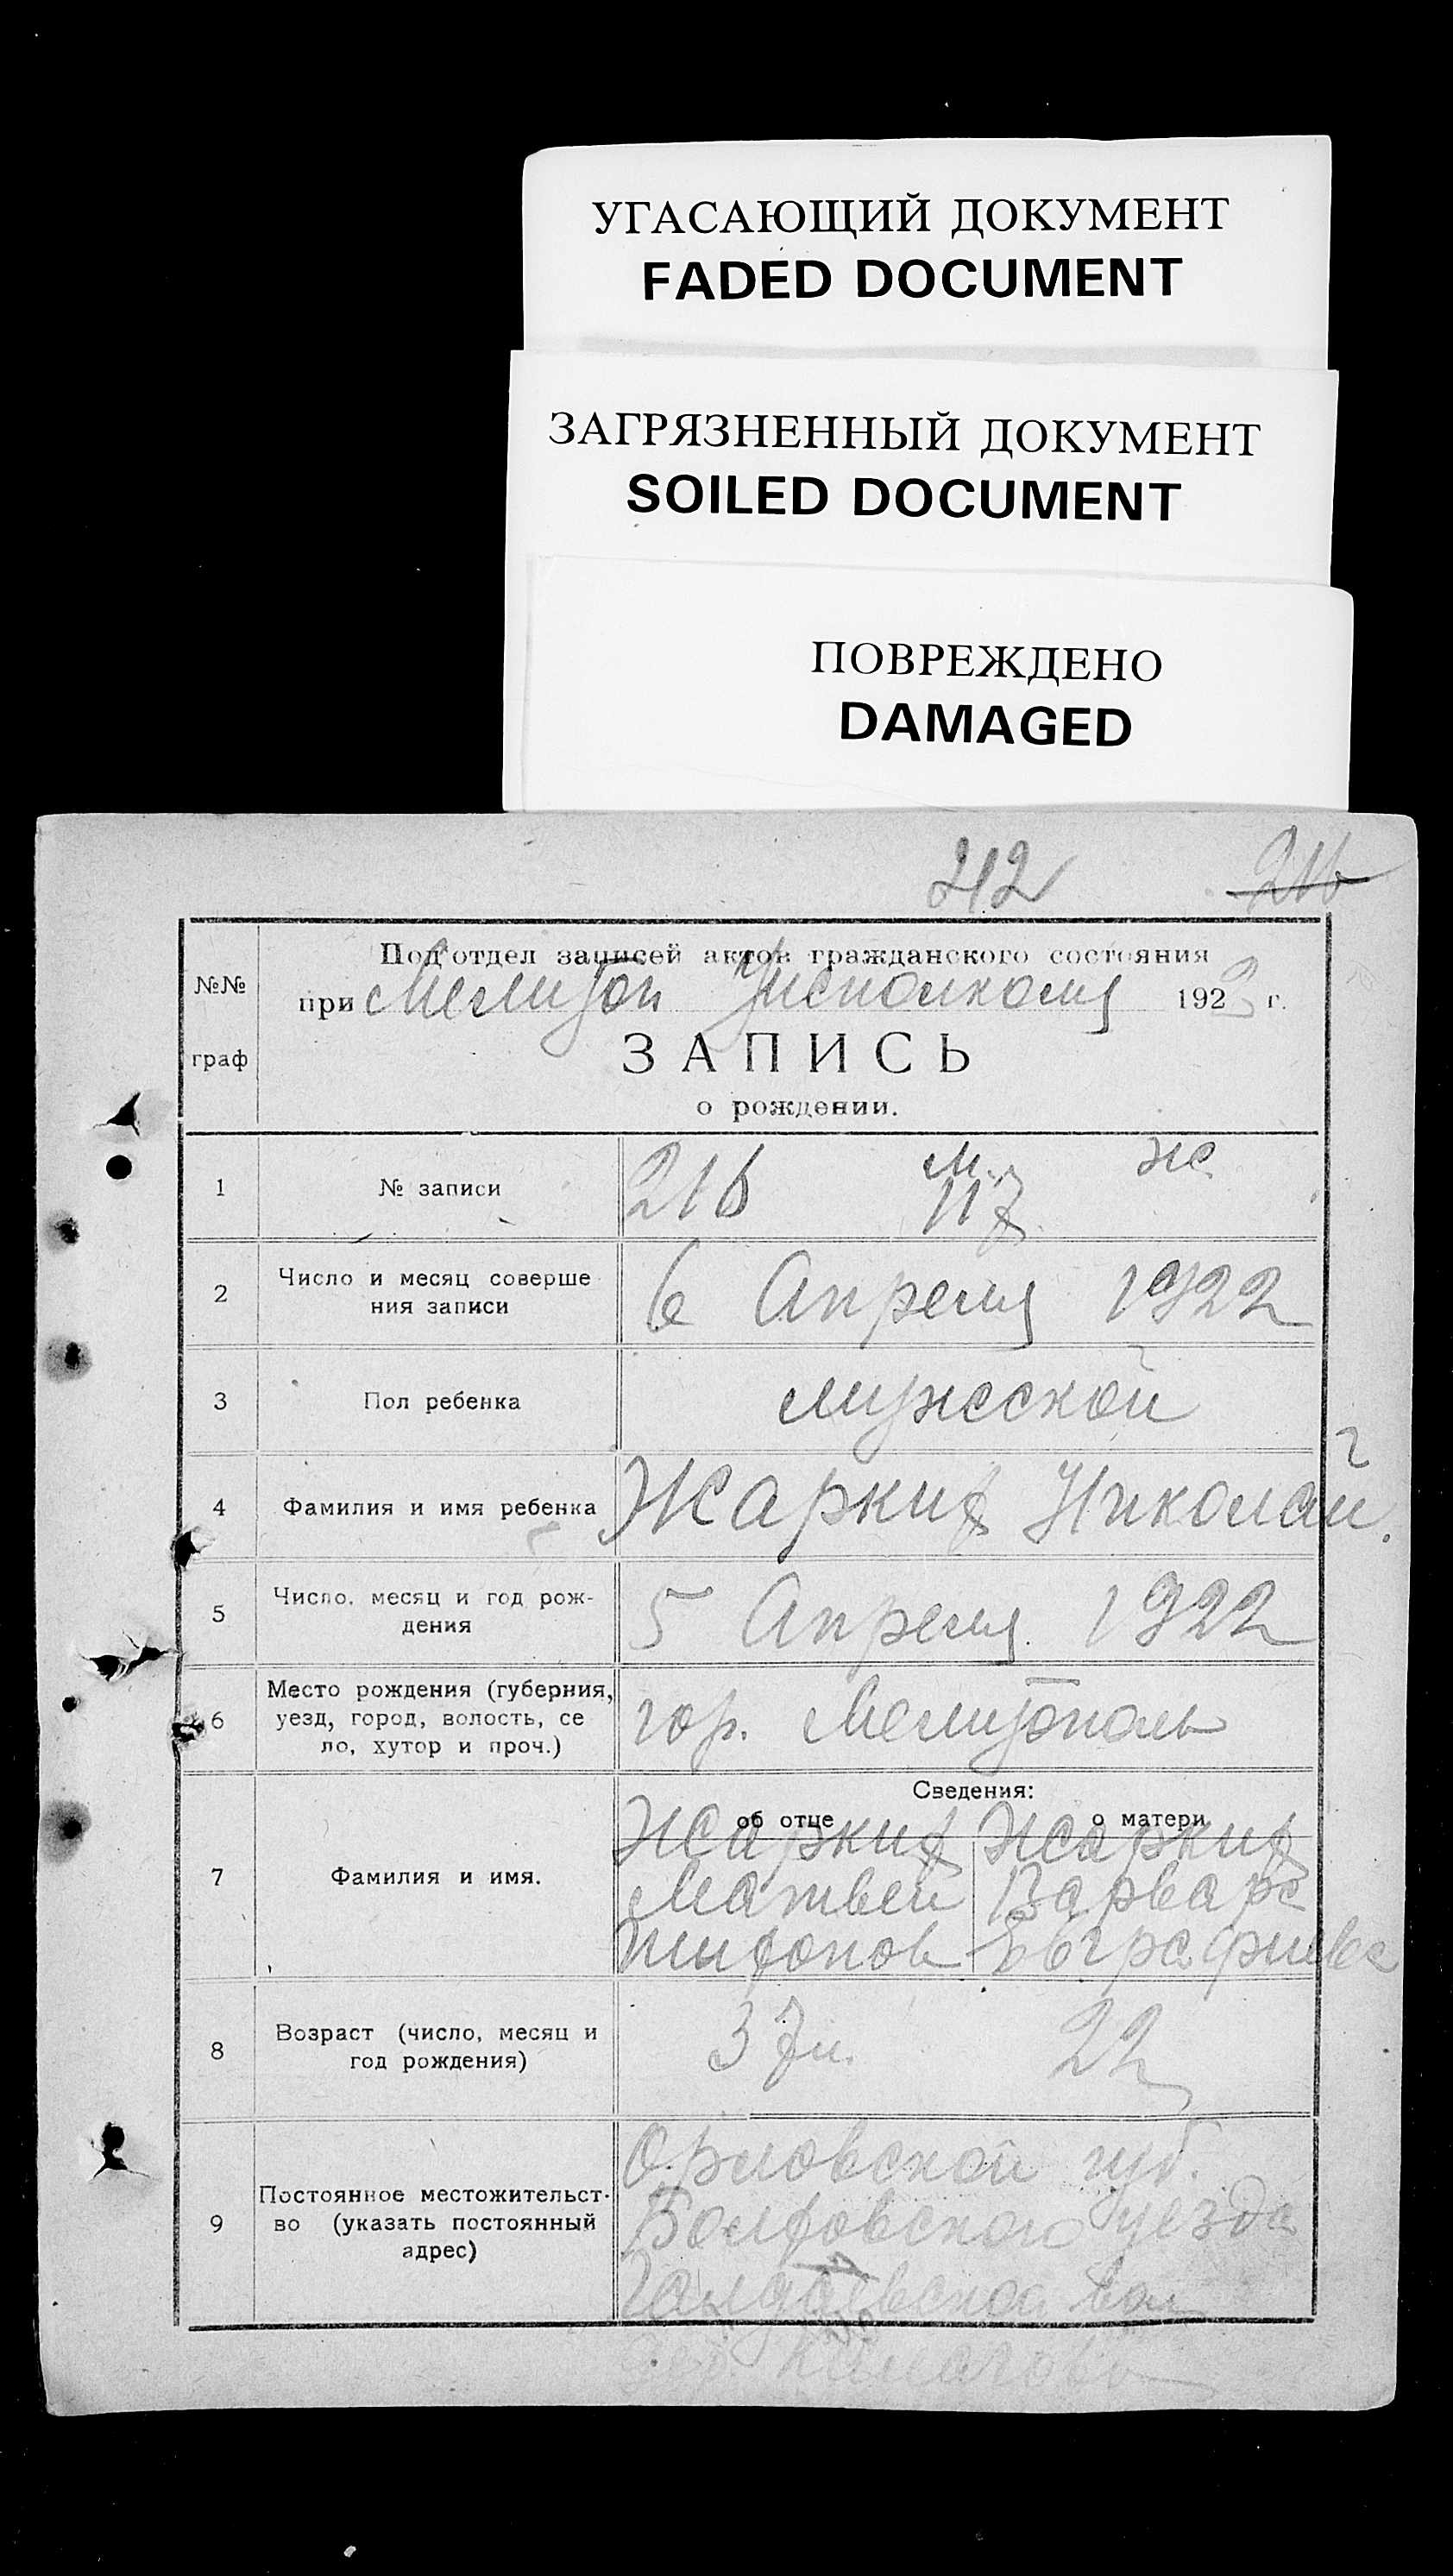 УГАСАЮЩИЙ ДОКУМЕНТ
FADED DOCUMENT
ЗАГРЯЗНЕННЫЙ ДОКУМЕНТ
SOILED DOCUMENT
ПОВРЕЖДЕНО
DAMAGED
212 216
№№ граф
Под'отдел записей актов гражданского состояния
при Мелитоп Исполкома 192 г.
ЗАПИСЬ
о рождении.
1 № записи 216 м. ж
117
2 Число и месяц соверше
ния записи
6 Апреля 1922
3 Пол ребенка мужской
4 Фамилия и имя ребенка Жарких Николай.
5 Число, месяц и год рож-
дения
5 Апреля 1922
6 Место рождения (губерния,
уезд, город, волость, се
ло, хутор и проч.)
гор. Мелитополь
Сведения:
об отце о матери
7 Фамилия и имя.
Жарких Жарких
Матвей Варвара
Евграфиевна
8 Возраст (число, месяц и
год рождения)
37 л. 22
9 Постоянное местожительст-
во (указать постоянный
адрес)
Орловской губ.
Болховского уезда
вол
дер